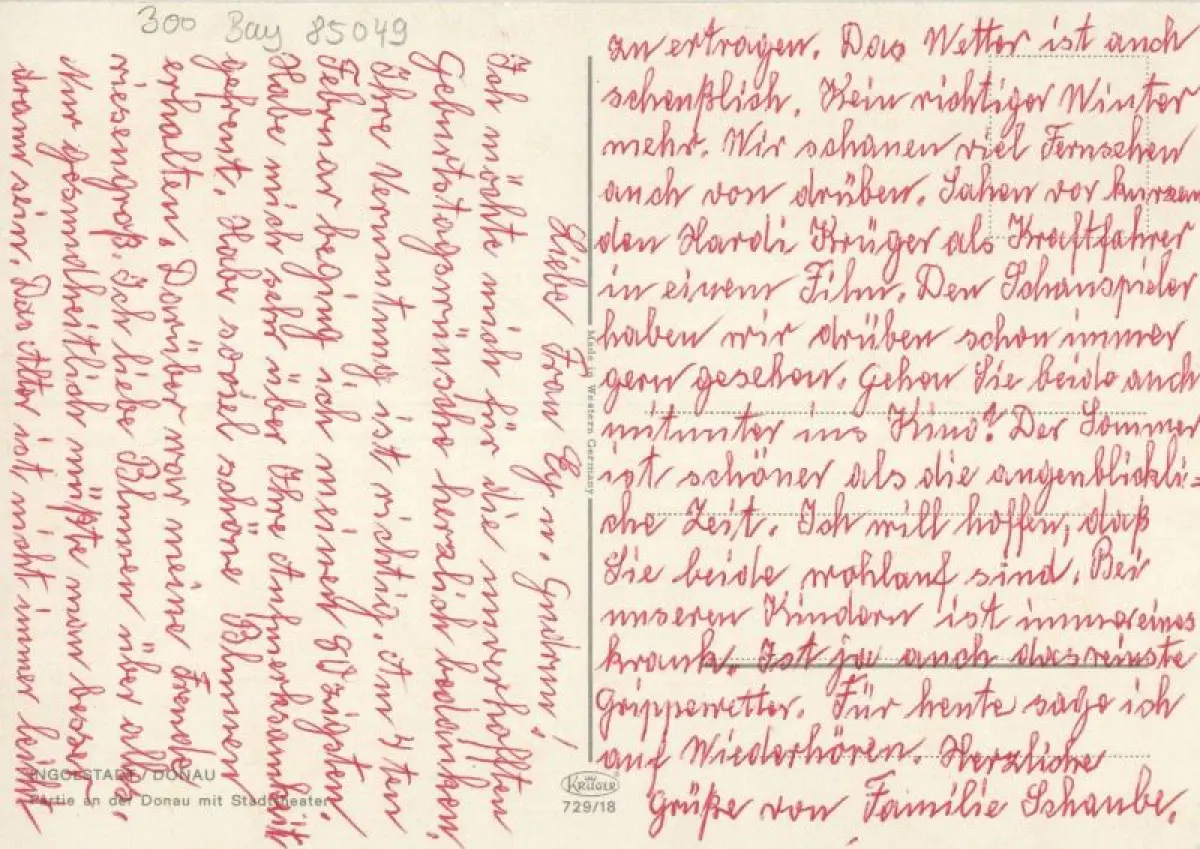 300 Bay 85049
Liebe Frau Ey u. Gudrun!
Ich möchte mich für die unverhofften
Geburtstagswünsche herzlich bedanken.
Ihre Vermutung ist richtig. Am 4 ten
Februar beging ich meinen 80zigsten.
Habe mich sehr über Ihre Aufmerksamkeit
gefreut. Habe soviel schöne Blumen
erhalten. Darüber war meine Freude
riesengroß. Ich liebe Blumen über alles.
Nur gesundheitlich müßte man besser
dran sein. Das Alter ist nicht immer leicht
zu ertragen. Das Wetter ist auch
scheußlich. Kein richtiger Winter
mehr. Wir schauen viel Fernsehen
auch von drüben. Sahen vor kurzen
den Hardi Krüger als Kraftfahrer
in einem Film. Den Schauspieler
haben wir drüben schon immer
gern gesehen. Gehen Sie beide auch
mitunter ins Kino? Der Sommer
ist schöner als die augenblickli=
che Zeit. Ich will hoffen, daß
Sie beide wohlauf sind. Bei
unseren Kindern ist immer eines
krank. Ist ja auch das reinste
Grippewetter. Für heute sage ich
auf Wiederhören. Herzliche
Grüße von Familie Schaube.
Made in Western Germany
INGOLSTADT / DONAU
Partie an der Donau mit Stadttheater
KRÜGER
729/18